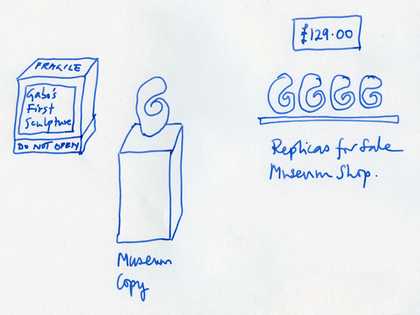 FRAGILE
Gabo's
First
Sculpture
DO NOT OPEN
Museum
Copy
£129.00
Replicas for Sale
Museum Shop.